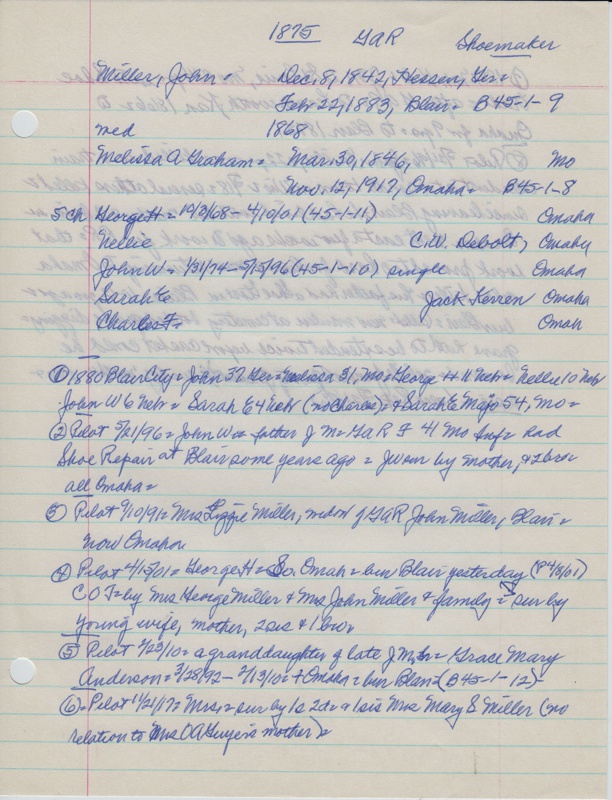 1875 GAR Shoemaker
Miller, John = Dec. 8, 1842, Hessen, Ger =
Feb 22, 1883, Blair = B 45-1-9
med 1868
Melissa A Graham = Mar. 30, 1846, Mo
Nov. 12, 1917, Omaha = B45-1-8
5 ch George H = 10/3/68 - 4/10/01 (45-1-11) Omaha
Nellie C.W. Debolt, Omaha
John W = 1/31/74 - 5/15/96 (45-1-10) single Omaha
Sarah E Jack Kerren Omaha
Charles F = Omah
① 1880 Blair City = John 37 Ger = Melissa 31, Mo = George H 11 Neb = Nellie 10 Neb
John W 6 Neb = Sarah E 4 Neb (no Charles) = + Sarah E 54, Mo =
② Pilot 5/21/96 = John W = father J M = GaR F 41 Mo Inf = had
Shoe Repair at Blair some years ago = J W sur by mother, & 2 bro =
all Omaha =
③ Pilot 9/10/91 = Mrs Lizzie Miller, widow of GAR John Miller, Blair =
now Omaha
④ Pilot 4/15/01 = George H = So. Omah = bur Blair yesterday
C O T = by Mrs George Miller & Mrs John Miller & family = sur by
young wife, mother, 2 sis & 1 bro =
⑤ Pilot 2/23/10 = a granddaughter of late J M, Sr = Grace Mary
Anderson = 3/28/92 - 2/13/10 = + Omaha = bur Blair = (B 45-1-12)
⑥ = Pilot 11/21/17 = Mrs = sur by 1s 2d = 1 sis Mrs Mary S Miller (no
relation to Mrs O A Guyer's mother) =